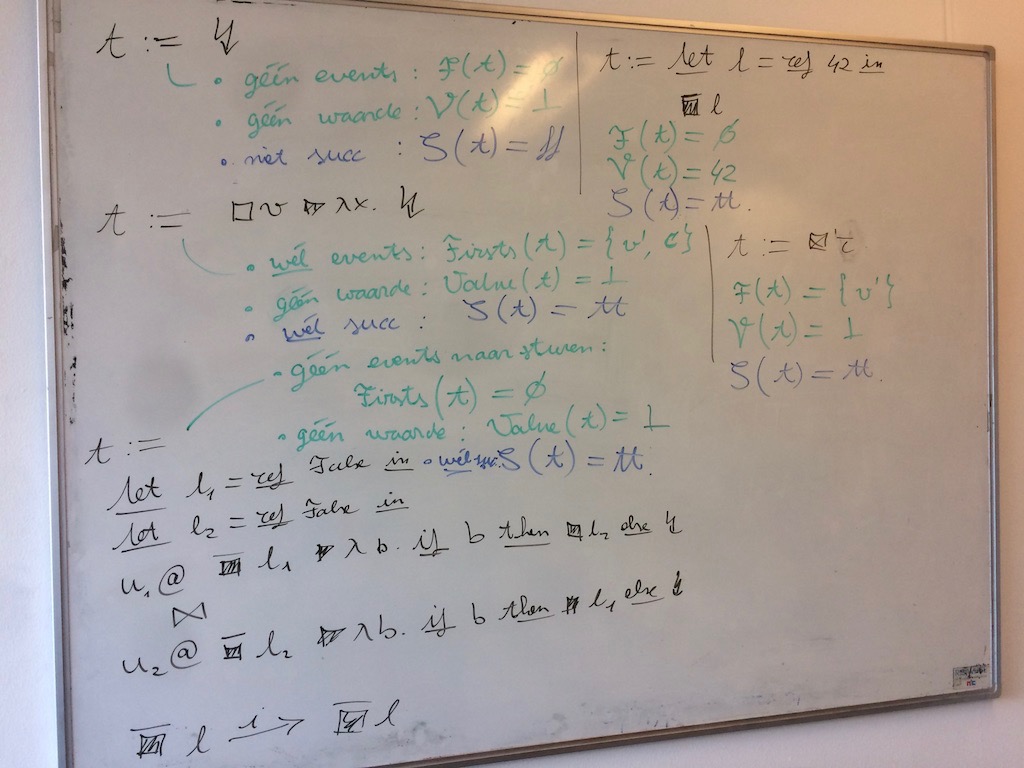 t := ↯
• géén events : F(t) = ∅
• géén waarde : V(t) = ⊥
• niet succ : S(t) = ff
t := let l = ref 42 in
▣ l
F(t) = ∅
V(t) = 42
S(t) = tt.
t := □ v ▷ λx. ↯
• wél events : Firsts(t) = {v', c'}
• géén waarde : Value(t) = ⊥
• wél succ : S(t) = tt
t := ⊠ τ
F(t) = {v'}
V(t) = ⊥
S(t) = tt.
• géén events naar sturen :
Firsts(t) = ∅
• géén waarde : Value(t) = ⊥
• wél S(t) = tt.
t :=
let l₁ = ref False in
let l₂ = ref False in
u₁ @ ▣ l₁ ▶ λ b. if b then ▣ l₂ else ↯
⋈
u₂ @ ▣ l₂ ▶ λ b. if b then ▣ l₁ else ↯
▣ l i→ ▣ l